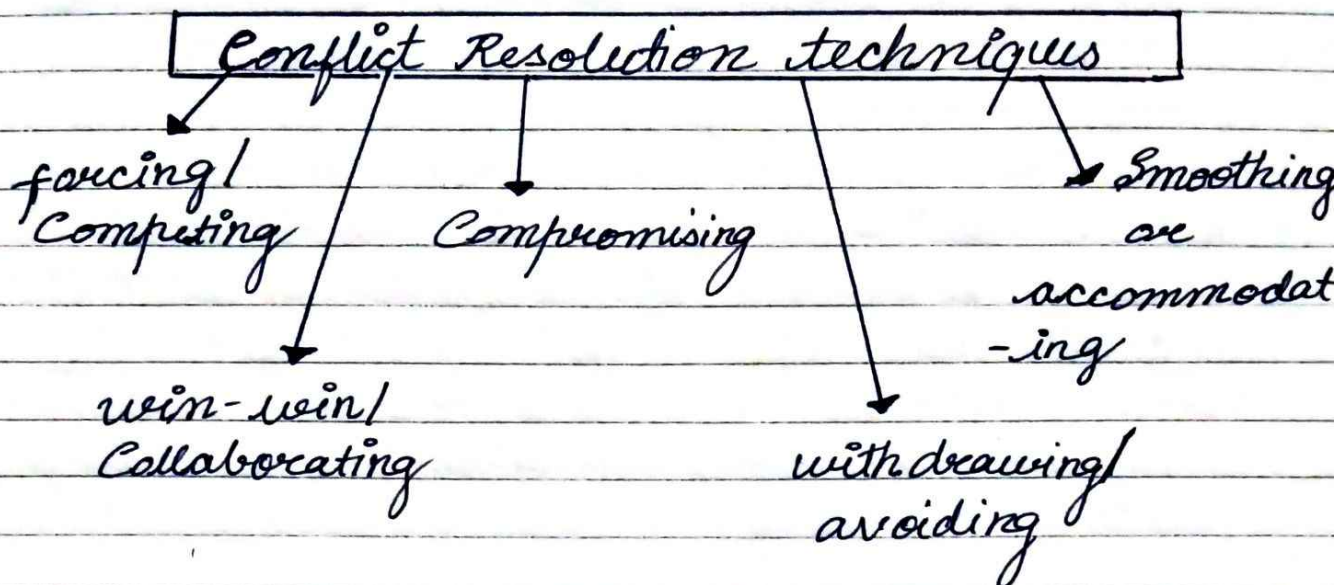 Conflict Resolution techniques
forcing/
Competing
Compromising
Smoothing
or
accommodat
-ing
win-win/
Collaborating
withdrawing/
avoiding